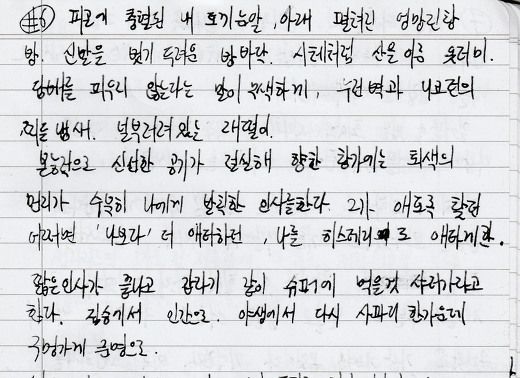 #6) 피로에 충혈된 내 토끼눈알, 아래 펼쳐진 엉망진창
방. 신발을 벗기 두려운 방바닥. 시체처럼 산을 이룬 옷더미.
담배를 피우지 않는다는 말이 무색하게, 누런 벽과 니코틴의
찌든 냄새. 널부러져있는 래떨이.
본능적으로 신선한 공기가 절실해 향한 창가에는 퇴색의
먼지가 수북히 나에게 발칙한 인사를한다. 그가 애토록
어쩌면 '나보다' 더 애타하던, 나를 히스테리로 애타게한.
짧은인사가 끝나고 같이 슈퍼에 먹을것 사러가라고
한다. 짐승에서 인간으로. 야생에서 다시 사파리 한가운데
구멍가게 문명으로.